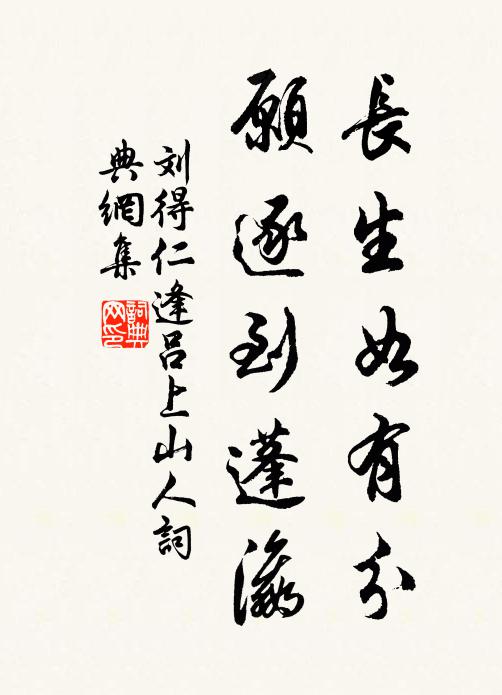 長生如有分
願逐到蓬瀛
刘得仁逢吕上山人詞
典網集
詞典
网印